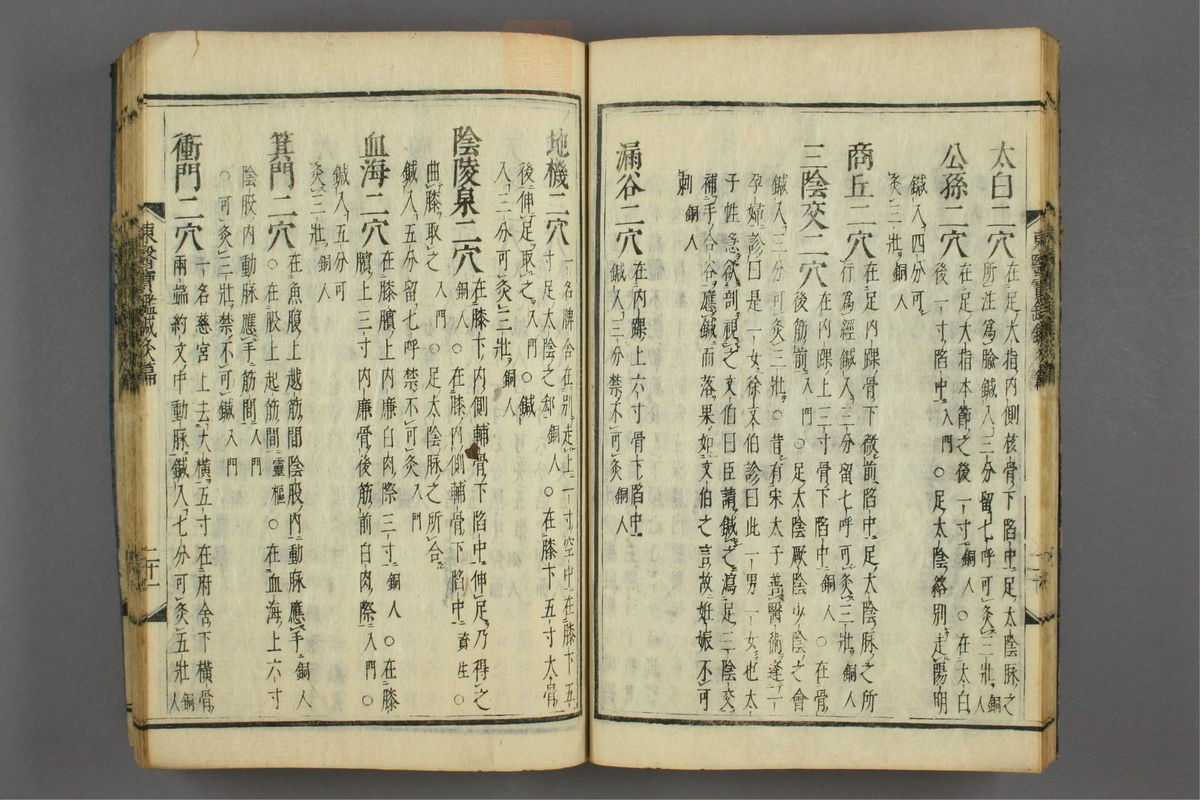 太白二穴在足大指內側核骨下陷中足太陰脉之
所注爲腧鍼入三分留七呼可灸三壯銅人
公孫二穴在足大指本節之後一寸銅人○在太白
後一寸陷中入門○足太陰絡別走陽明
鍼入四分可
灸三壯銅人
商丘二穴在足內踝骨下微前陷中足太陰脉之所
行爲經鍼入三分留七呼可灸三壯銅人
三陰交二穴在內踝上三寸骨下陷中銅人○在骨
後筋前入門○足太陰厥陰少陰之會
鍼入三分可灸三壯○昔有宋太子善醫術逢一
孕婦診曰是一女徐文伯診曰此一男一女也太
子性急欲剖視之文伯曰臣請鍼之瀉足三陰交
補手合谷應鍼而落果如文伯之言故妊娠不可
刺銅人
漏谷二穴在內踝上六寸骨下陷中
鍼入三分禁不可灸銅人
地機二穴一名脾舍在別走上一寸空中在膝下五
寸足太陰之郄銅人○在膝下五寸大骨
後伸足取之入門○鍼
入三分可灸三壯銅人
陰陵泉二穴在膝下內側輔骨下陷中伸足乃得之
銅人○在膝內側輔骨下陷中資生○
曲膝取之入門○足太陰脉之所合
鍼入五分留七呼禁不可灸入門
血海二穴在膝臏上內廉白肉際三寸銅人○在膝
臏上三寸內廉骨後筋前白肉際入門○
鍼入五分可
灸三壯銅人
箕門二穴在魚腹上越筋間陰股內動脉應手銅人
○在股上起筋間靈樞○在血海上六寸
陰股內動脉應手筋間入門
○可灸三壯禁不可鍼入門
衝門二穴一名慈宮上去大橫五寸在府舍下橫骨
兩端約文中動脉鍼入七分可灸五壯銅人
東醫寶鑑鍼灸篇
二十一